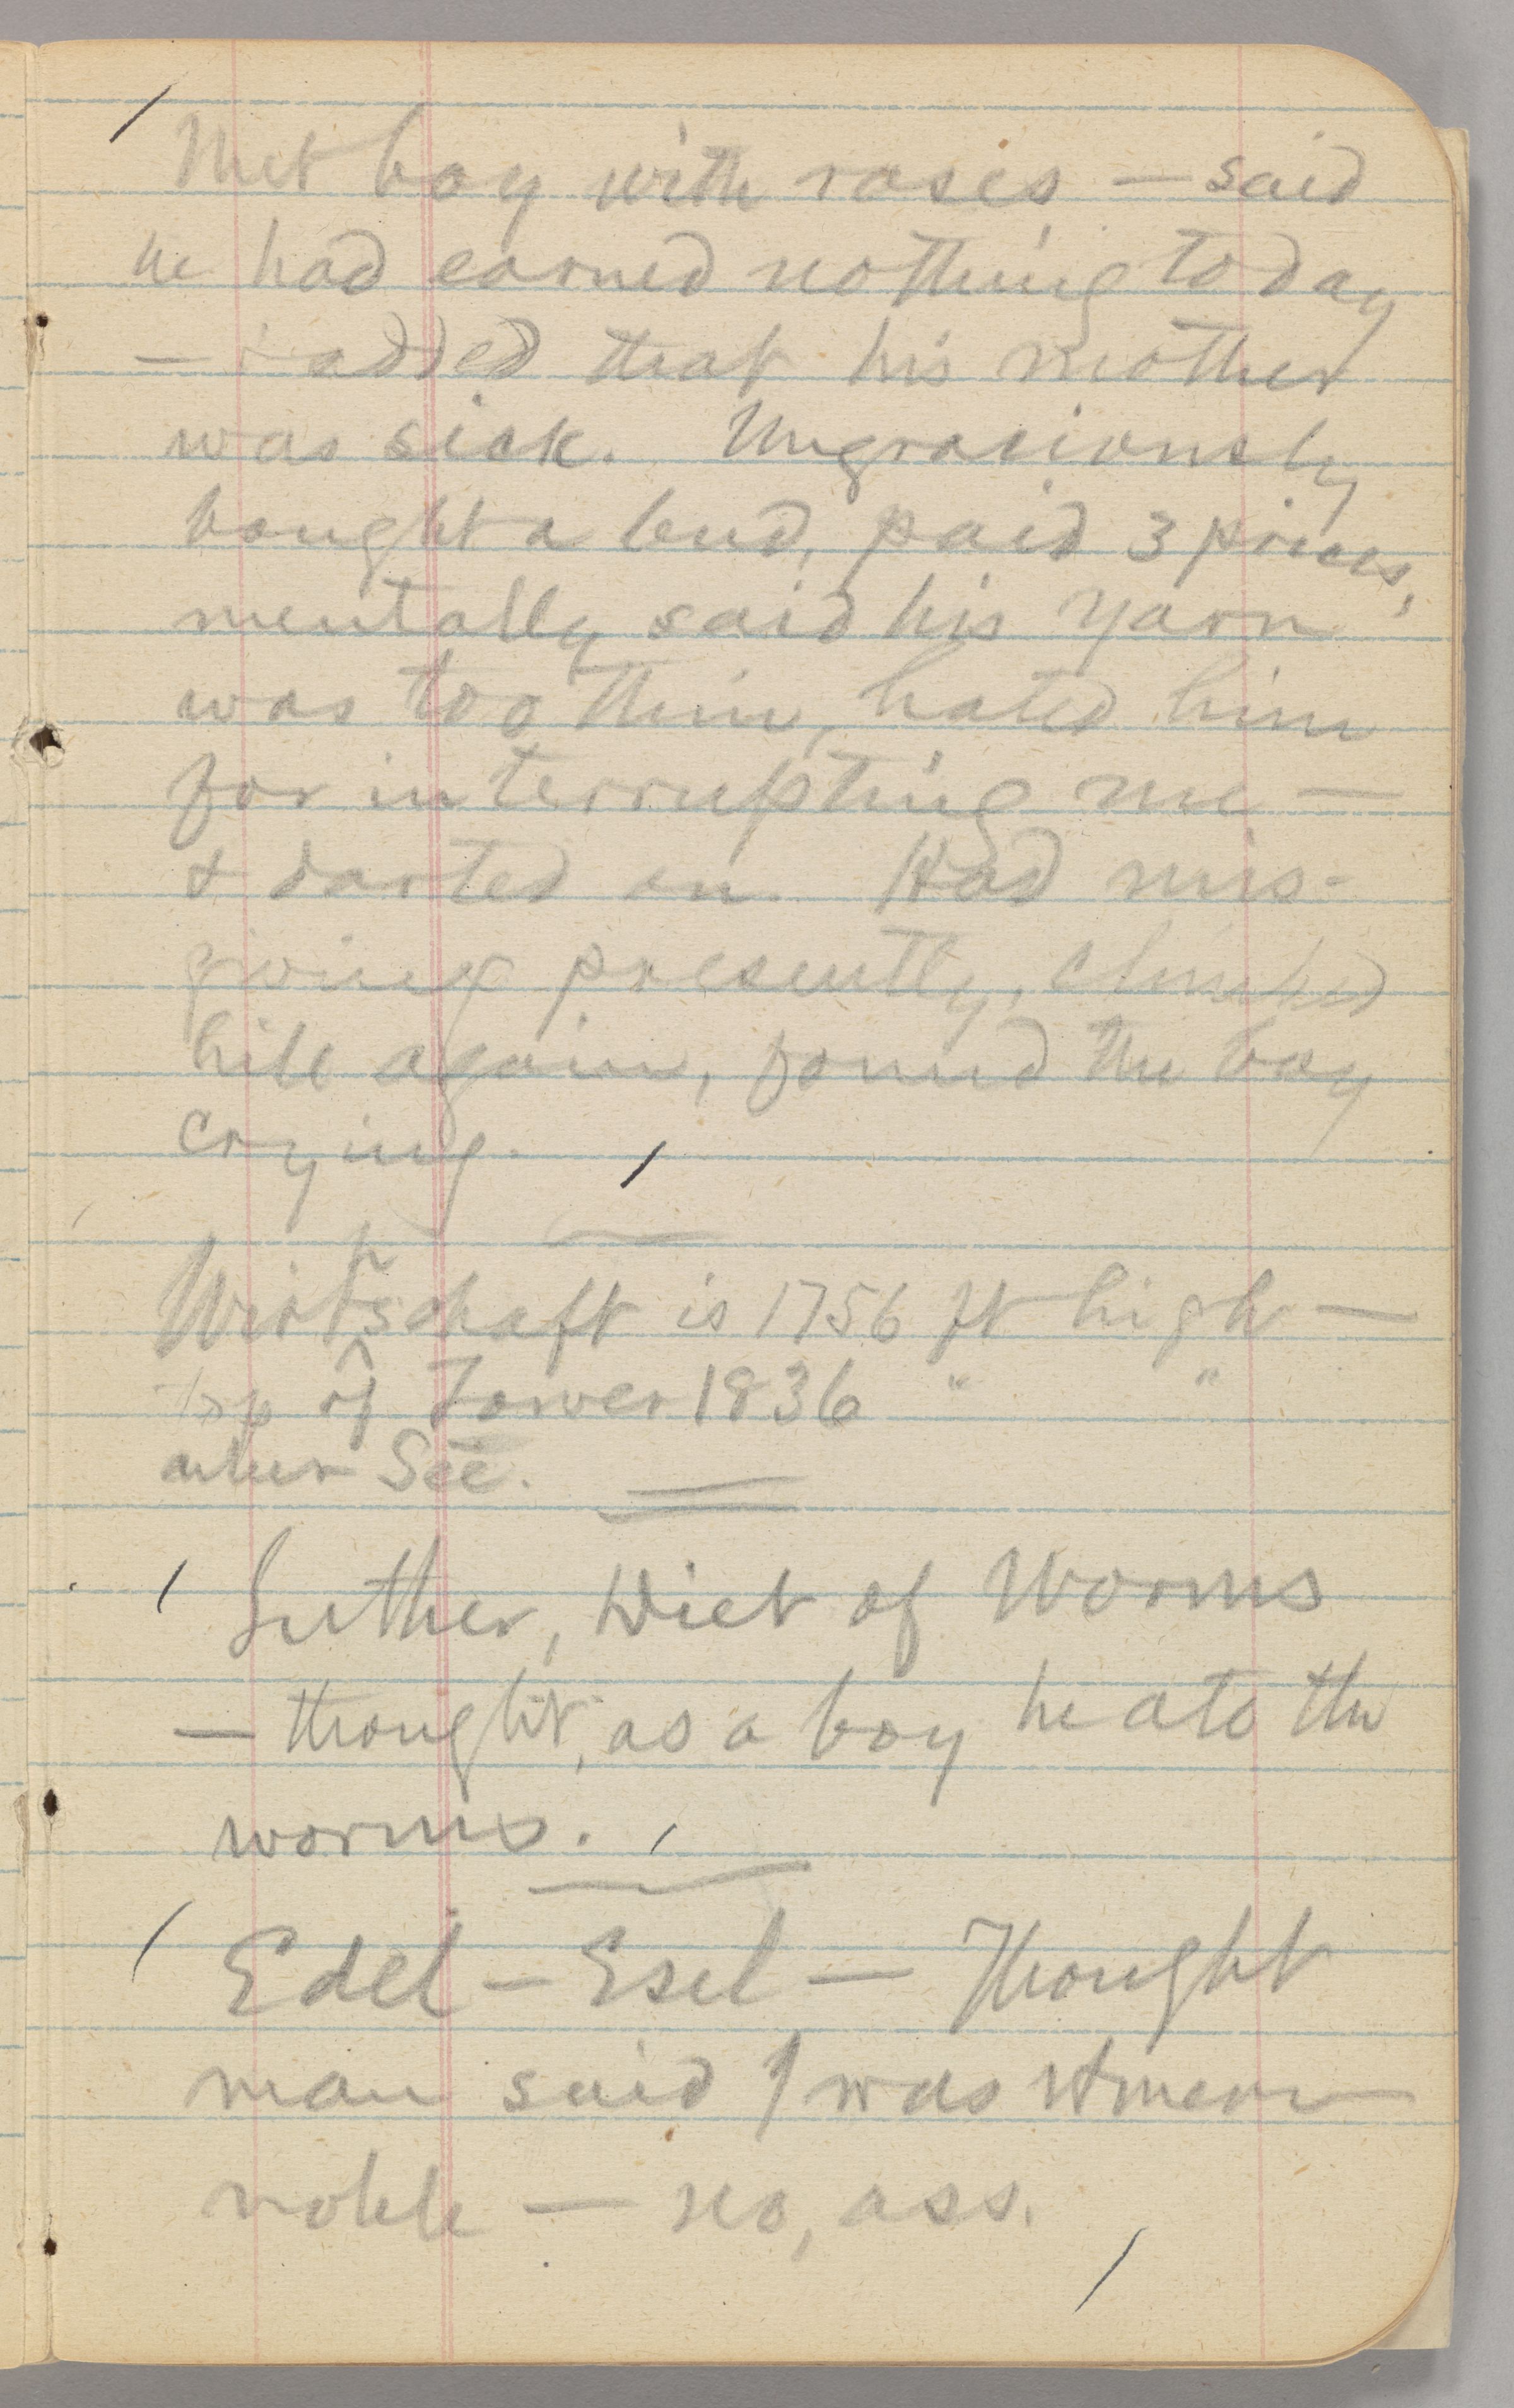 Met boy with roses — said
he had earned nothing today
— added that his mother
was sick. Ungraciously
bought a bud, paid 3 prices,
mentally said his yarn
was too thin, hated him
for interrupting me —
& darted on. Had mis-
givings presently, climbed
hill again, found the boy
crying.
Wirtschaft is 1756 ft high —
top of Tower 1836 " "
über See.
Luther, Diet of Worms
— thought, as a boy he ate the
worms.
Edel — Esel — Thought
man said I was
noble — no, ass.